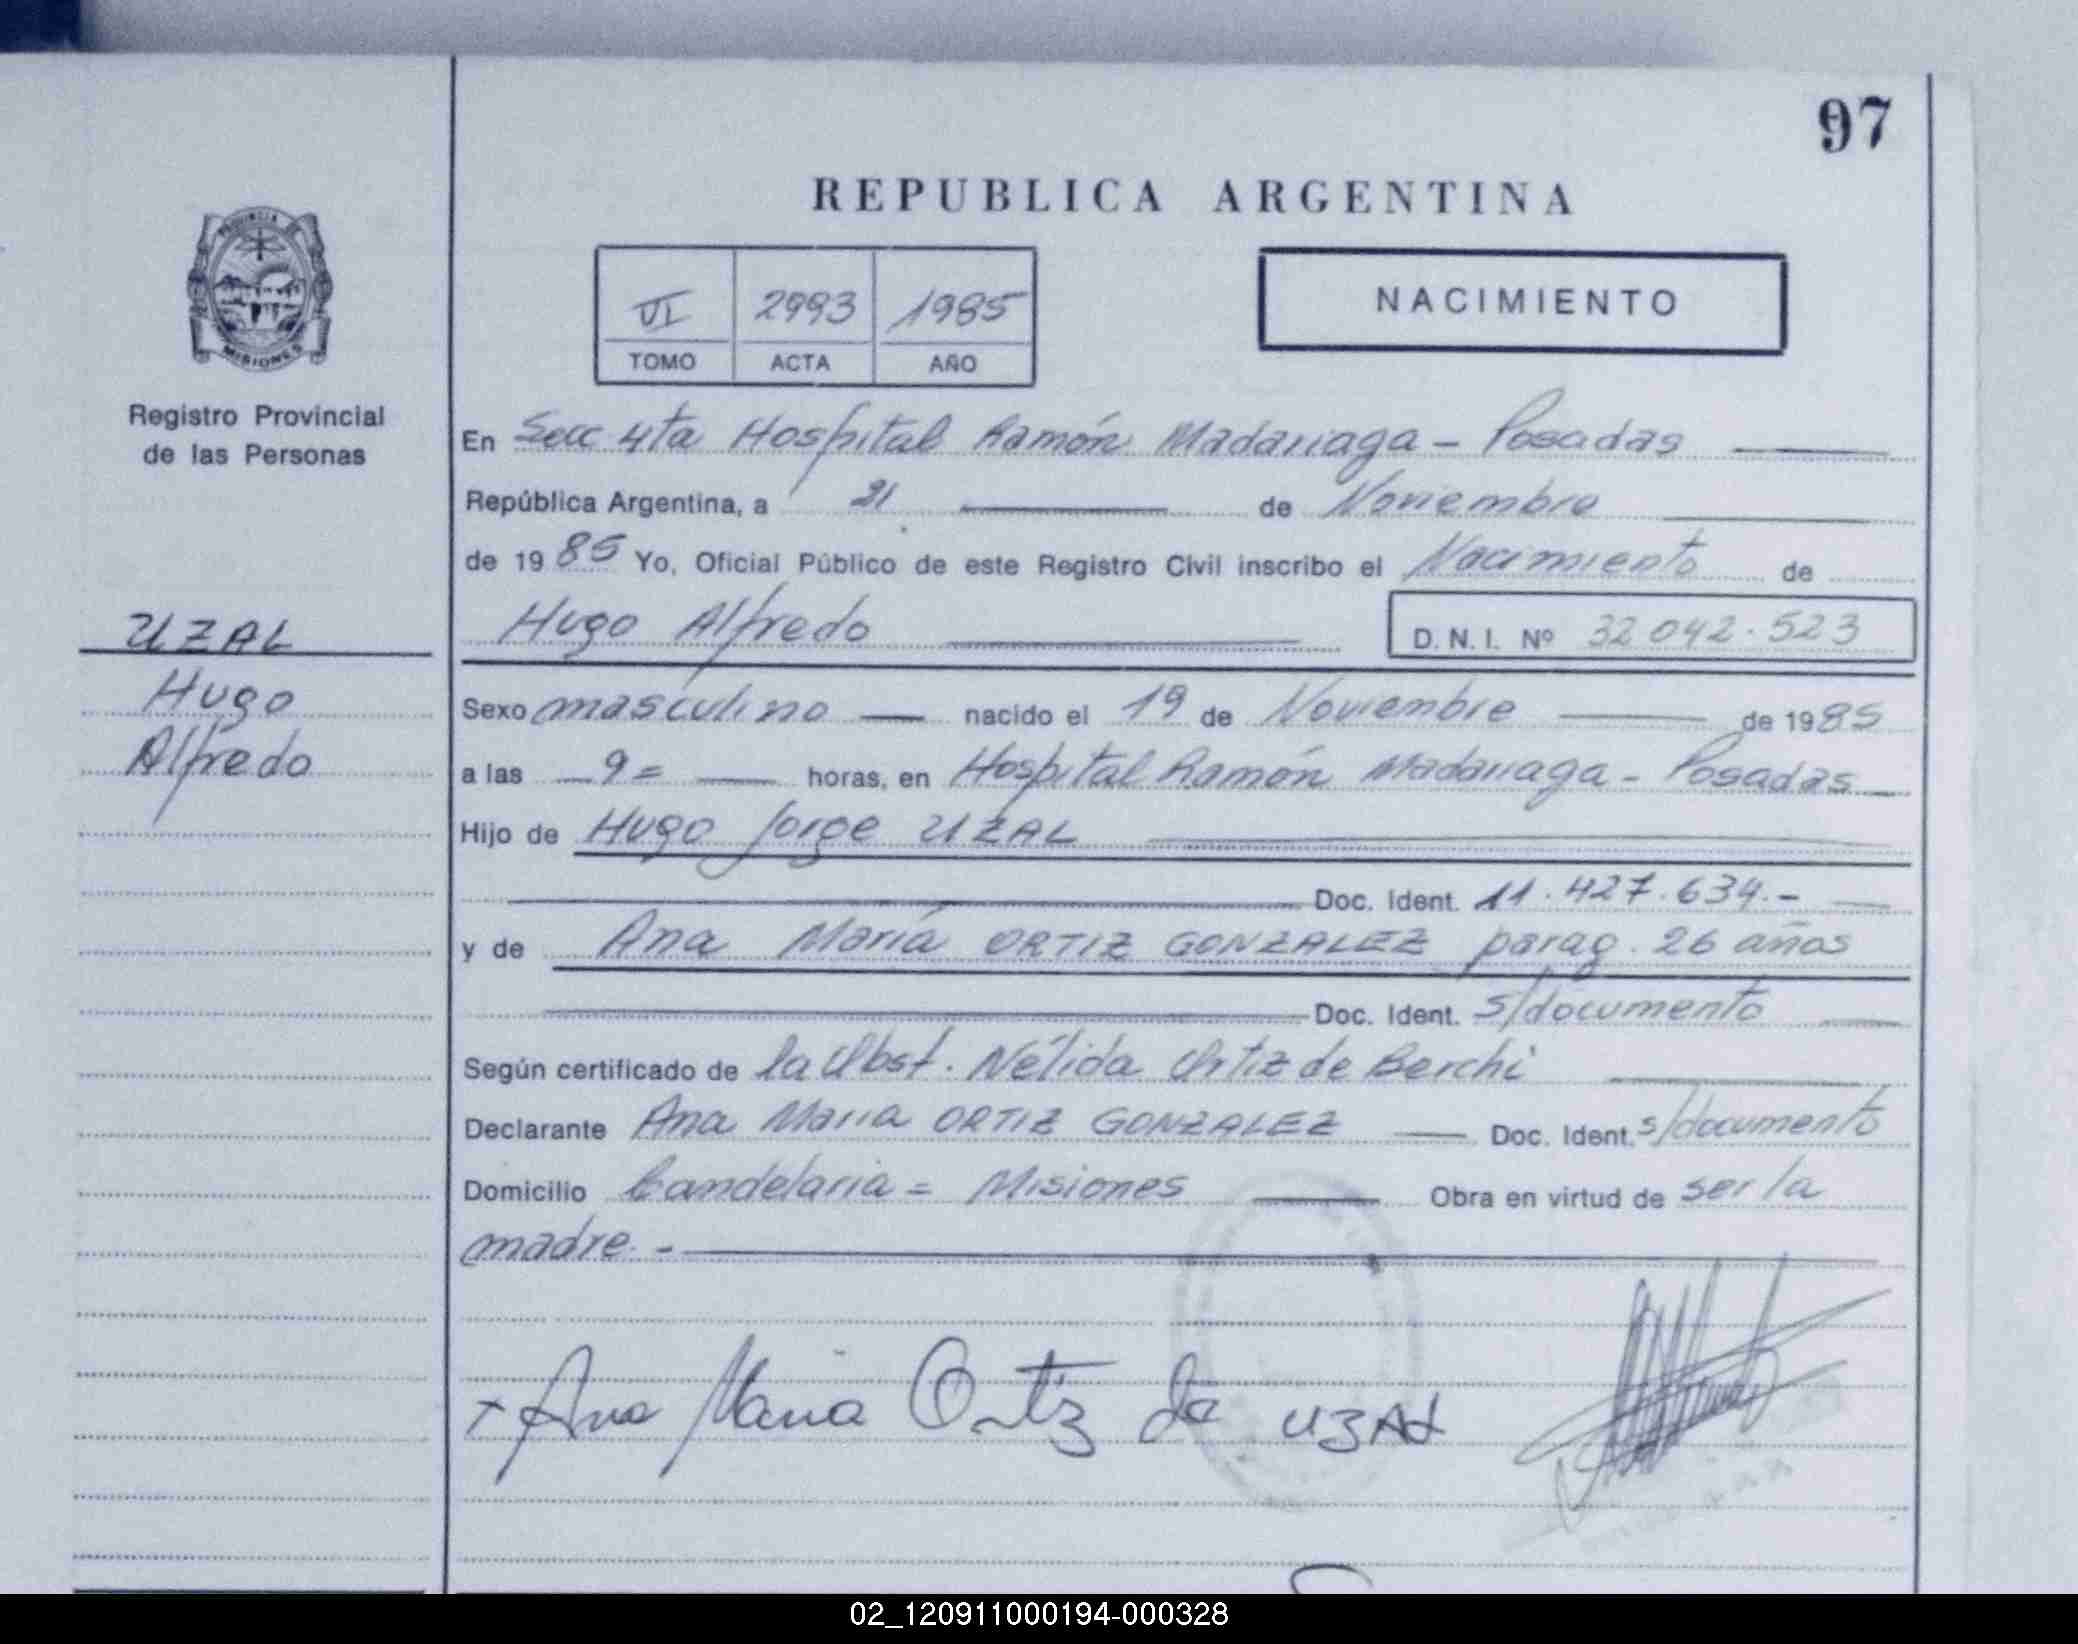 97
REPUBLICA ARGENTINA
PROVINCIA
MISIONES
Registro Provincial
de las Personas
VI 2993 1985
TOMO ACTA AÑO
NACIMIENTO
En Secc 4ta Hospital Ramón Madariaga - Posadas
República Argentina, a 21 de Noviembre
de 1985 Yo, Oficial Público de este Registro Civil inscribo el Nacimiento de
Hugo Alfredo D.N.I. Nº 32042.523
UZAL
Hugo
Alfredo
Sexo masculino nacido el 19 de Noviembre de 1985
a las 9= horas, en Hospital Ramón Madariaga - Posadas
Hijo de Hugo Jorge UZAL
Doc. Ident. 11.427.634.-
y de Ana María ORTIZ GONZALEZ parag. 26 años
Doc. Ident. s/documento
Según certificado de la Obst. Nélida Ortiz de Berchi
Declarante Ana Maria ORTIZ GONZALEZ Doc. Ident. s/documento
Domicilio Candelaria = Misiones Obra en virtud de ser la
madre. -
+ Ana Maria Ortiz de UZAL
02_120911000194-000328